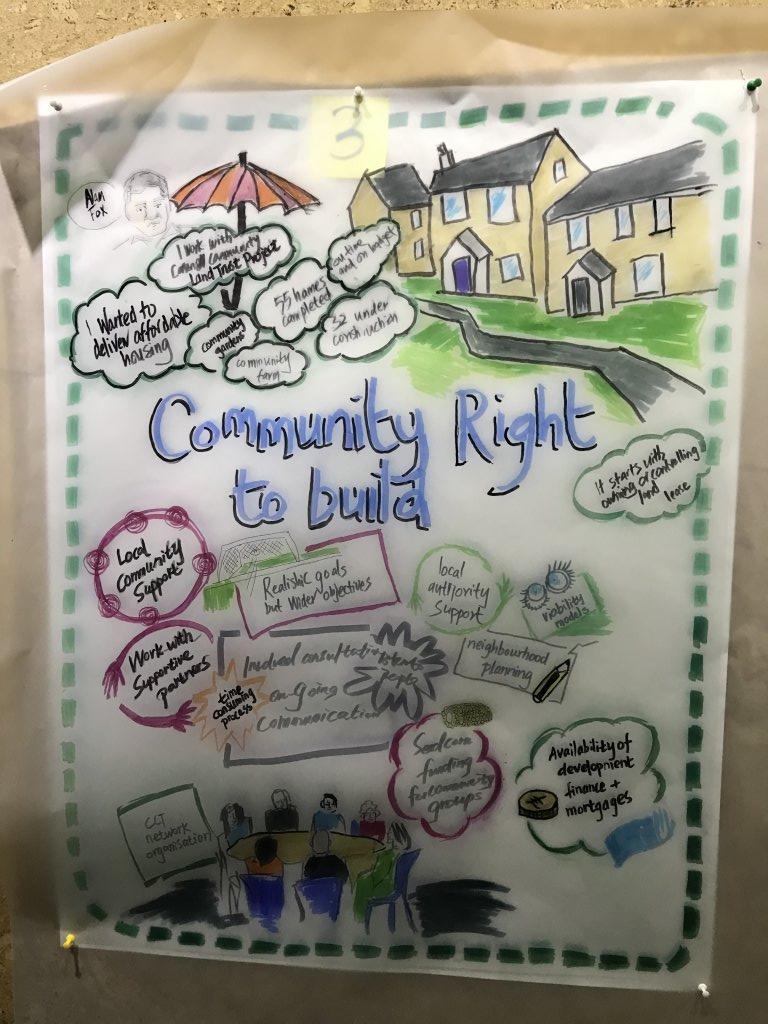 3
Alan
Fox
I work with
Cornwall Community
Land Trust Project
on time
and on budget
I wanted to
deliver affordable
housing
55 homes
completed
32 under
construction
community
gardens
community
farm
Community Right
to build
It starts with
owning or controlling
land lease
Local
Community
Support
Realistic goals
but wider objectives
local
authority
Support
viability
models
Work with
Supportive
partners
time
consuming
process
Involved consultation
on-going
communication
neighbourhood
planning
Seedcorn
funding
for community
groups
Availability of
development
finance +
mortgages
CLT
network
organisation